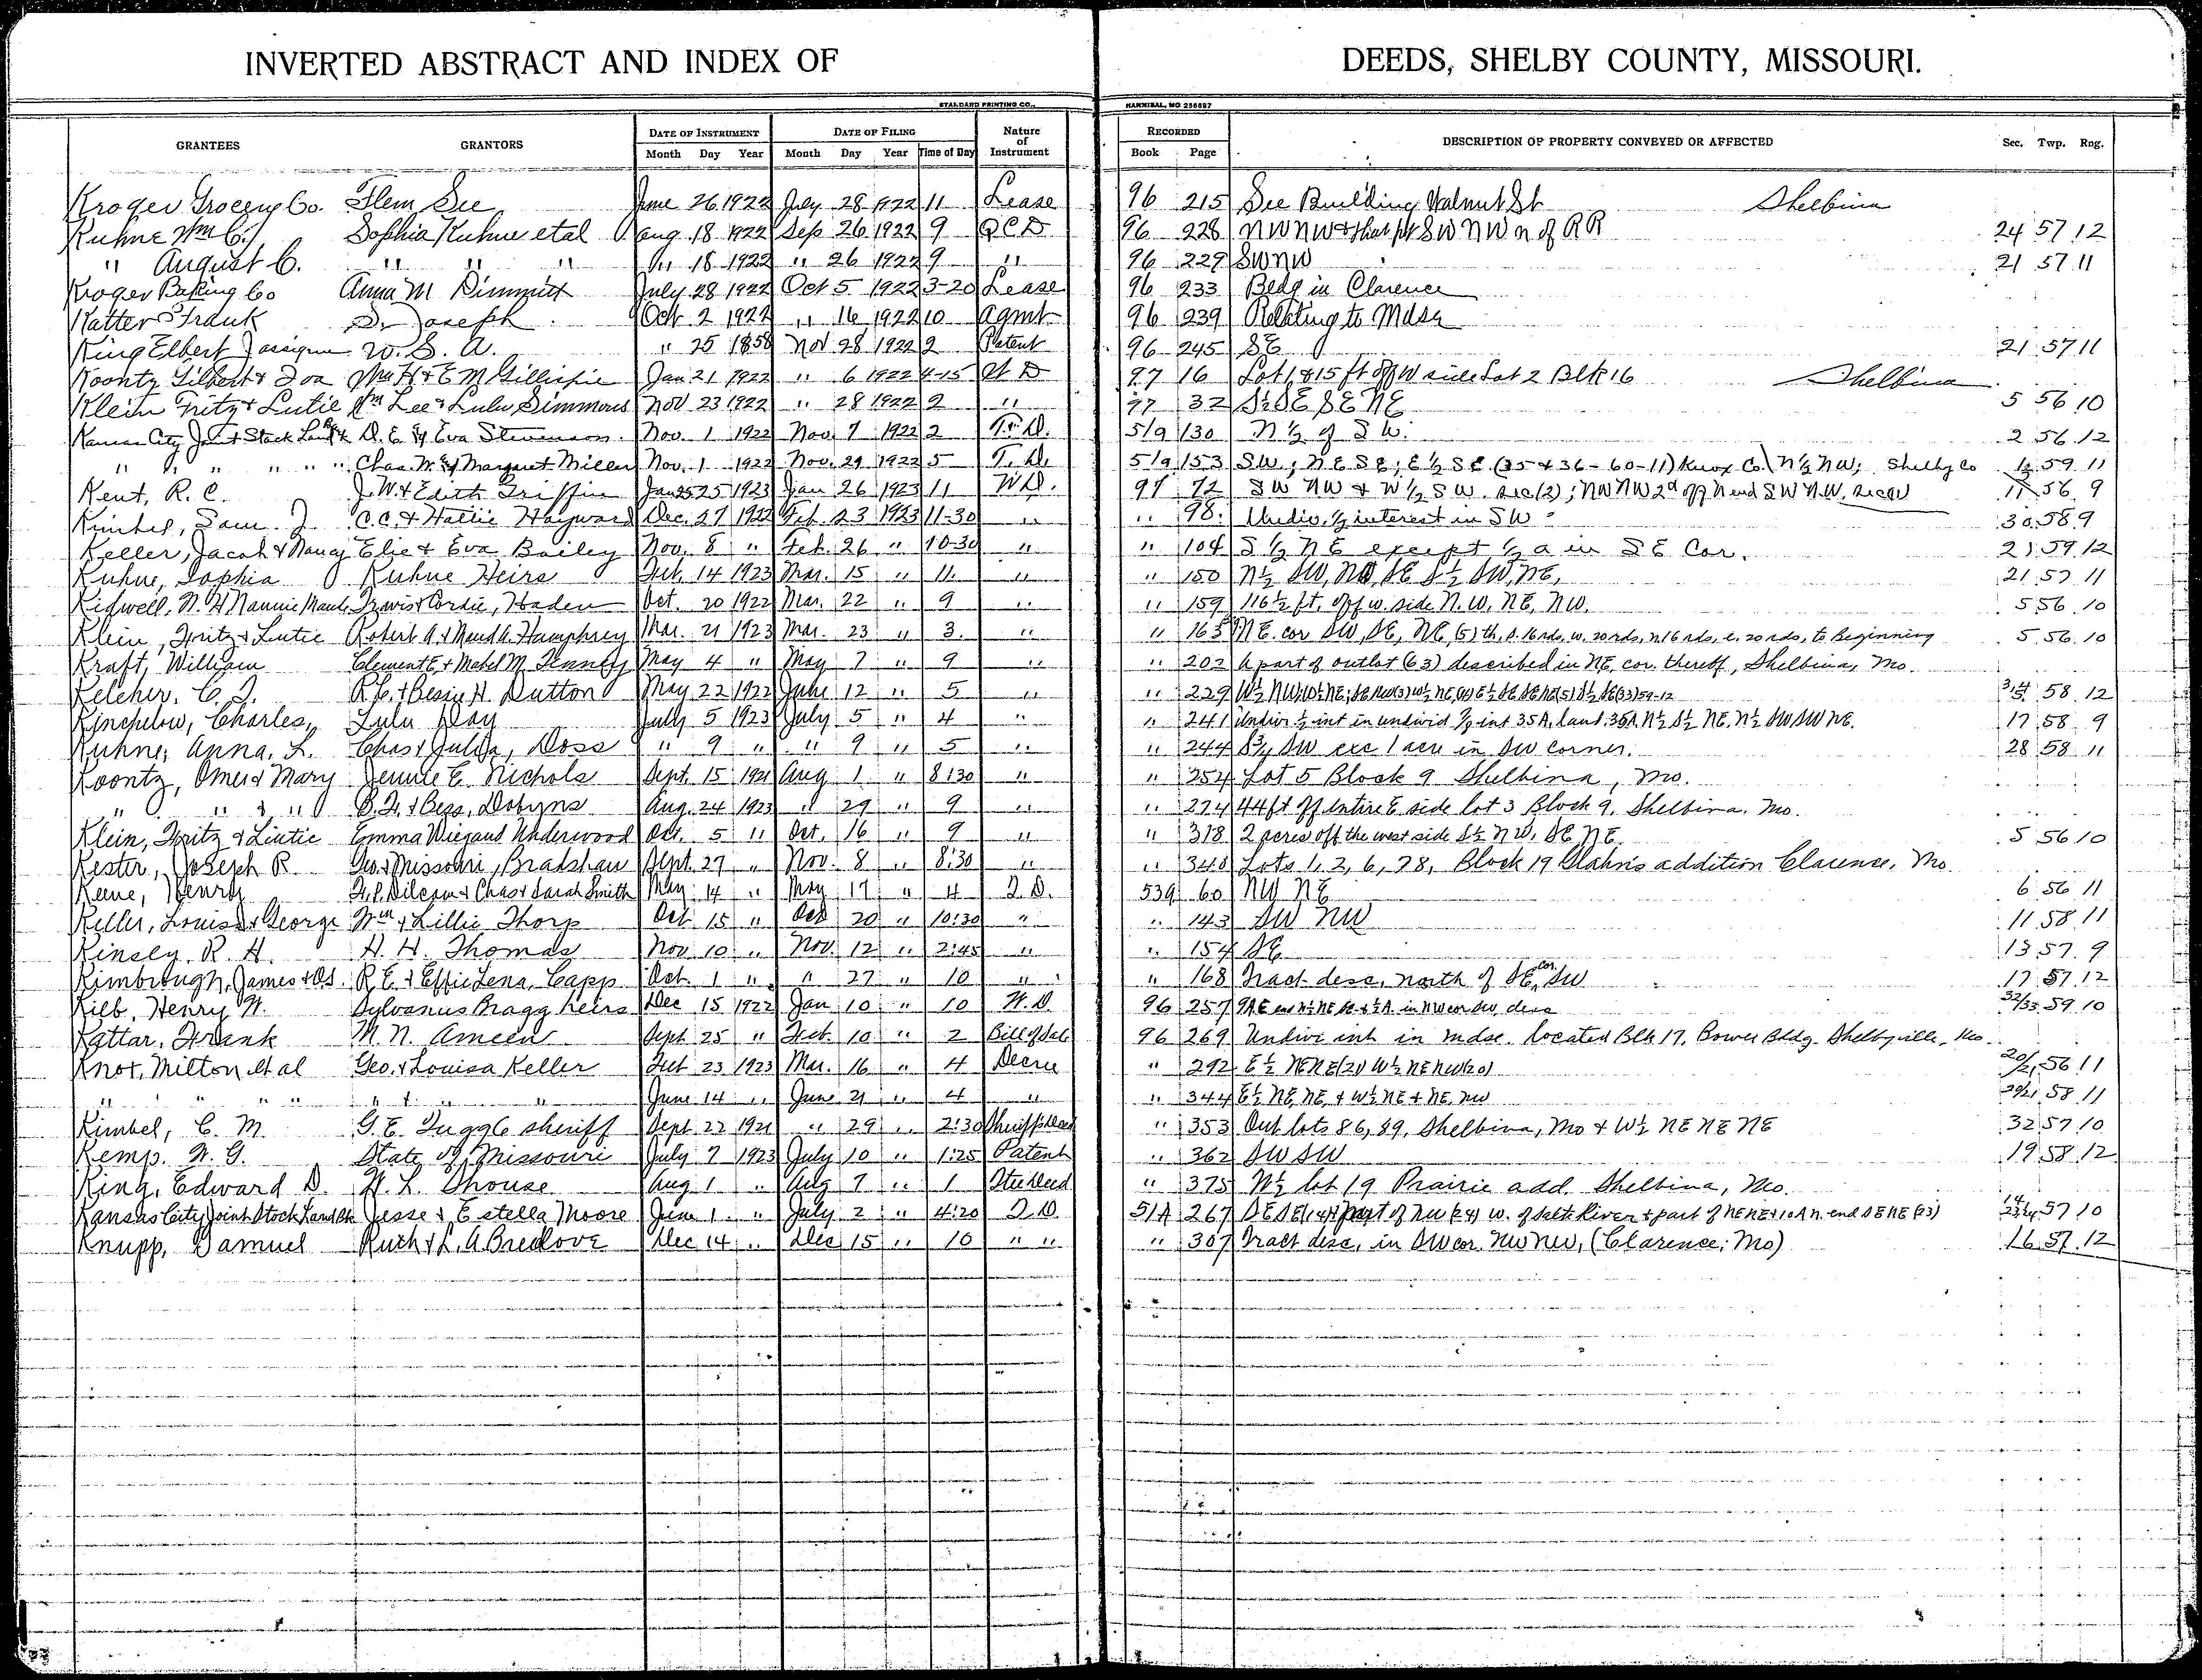 INVERTED ABSTRACT AND INDEX OF DEEDS, SHELBY COUNTY, MISSOURI.
STANDARD PRINTING CO., HANNIBAL, MO 256697
GRANTEES GRANTORS DATE OF INSTRUMENT DATE OF FILING Nature of Instrument RECORDED DESCRIPTION OF PROPERTY CONVEYED OR AFFECTED Sec. Twp. Rng.
Month Day Year Month Day Year Time of Day Book Page
Kroger Grocery Co. Flem See June 26 1922 July 28 1922 11 Lease 96 215 See Building Walnut St Shelbina
Kuhne Wm C. Sophia Kuhne et al Aug 18 1922 Sep 26 1922 9 QCD 96 228 NW NW & that pt SW NW n of RR 24 57 12
" August C. " " " " 18 1922 " 26 1922 9 " 96 229 SW NW 21 57 11
Kroger Baking Co Anna M Dimmitt July 28 1922 Oct 5 1922 3-20 Lease 96 233 Bldg in Clarence
Katter Frank D. Joseph Oct 2 1922 " 16 1922 10 Agmt 96 239 Relating to Mdse
King Elbert J assignee U. S. A. " 25 1858 Nov 28 1922 2 Patent 96 245 SE 21 57 11
Koontz Gilbert & Iva Wm H & E M Gillispie Jan 21 1922 " 6 1922 4-15 W D 97 16 Lot 1 & 15 ft off W side Lot 2 Blk 16 Shelbina
Klein Fritz & Lutie Wm Lee & Lulu Simmons Nov 23 1922 " 28 1922 2 " 97 32 S½ SE SE NE 5 56 10
Kansas City Joint Stock Land Bk D. E. & Eva Stevenson Nov. 1 1922 Nov. 7 1922 2 Tr. D. 519 130 N ½ of SW. 2 56 12
" " " " " " Chas M. & Margaret Miller Nov. 1 1922 Nov. 29 1922 5 T. D. 519 153 SW; NE SE; E ½ SE (35 & 36-60-11) Knox Co N ½ NW; Shelby Co 59 11
Kent, R. C. J. W. & Edith Griffin Jan 25 1923 Jan 26 1923 11 W.D. 97 72 SW NW & W ½ SW sec (2); NW NW off N end SW NW 56 9
Kimbel, Sam. J. C. C. & Hattie Hayward Dec. 27 1922 Feb. 23 1923 11-30 " " 98 Undiv. ½ interest in SW 30 58 9
Keller, Jacob & Nancy Elic & Eva Bailey Nov. 8 " Feb. 26 " 10-30 " " 104 S ½ NE except ½ a in SE Cor. 21 59 12
Kuhne, Sophia Kuhne Heirs Feb. 14 1923 Mar. 15 " 11 " " 150 N½ SW, NW, SE S½ SW, NE, 21 57 11
Kidwell, N. H. Nannie Maude Travis & Cordie, Haden Oct. 20 1922 Mar. 22 " 9 " " 159 116½ ft. off w. side N. W, NE, NW. 5 56 10
Klein, Fritz & Lutie Robert A. & Maud A. Humphrey Mar. 21 1923 Mar. 23 " 3 " " 163 NE. cor SW, SE, NE, (5) th, S. 16 rds, w. 20 rds, n 16 rds, e. 20 rds, to beginning 5 56 10
Kraft, William Clement E. & Mabel M. Tenney May 4 " May 7 " 9 " " 202 A part of outlot (63) described in NE, cor. thereof, Shelbina, Mo.
Kelcher, C. J. R. C. & Besie H. Dutton May 22 1922 June 12 " 5 " " 229 W½ NW; W½ NE; SE NW (3) W½ NE, (4) E½ SE SE NE (5) S½ SE (33) 59-12 58 12
Kincheloe, Charles, Lulu Day July 5 1923 July 5 " 4 " " 241 Undiv ½ int in undivid ⅓ int 35 A, land. 35 A. N½ S½ NE. N½ SW SW NE. 17 58 9
Kuhne, Anna, L. Chas & Julia, Doss " 9 " " 9 " 5 " " 244 S¾ SW exc 1 acre in SW corner. 28 58 11
Koontz, Omer & Mary Jennie E. Nichols Sept. 15 1921 Aug 1 " 8:30 " " 254 Lot 5 Block 9 Shelbina, Mo.
" " & " B. F. & Bess, Dobyns Aug. 24 1923 " 29 " 9 " " 274 44 ft off entire E side lot 3 Block 9, Shelbina, Mo.
Klein, Fritz & Lutie Emma Wiegand Underwood Oct. 5 " Oct. 16 " 9 " " 318 2 acres off the west side S½ NW, SE NE. 5 56 10
Kester, Joseph R. Geo & Missouri, Bradshaw Sept. 27 " Nov. 8 " 8:30 " " 340 Lots 1, 2, 6, 7 8, Block 19 Clahns addition Clarence, Mo.
Keene, Henry F. P. Wilson & Chas & Sarah Smith May 14 " May 17 " 4 T. D. 539 60 NW NE 6 56 11
Keller, Louisa & George Wm & Lillie Thorp Oct 15 " Oct 20 " 10:30 " " 143 SW NW 11 58 11
Kinsey, R. H. H. H. Thomas Nov 10 " Nov. 12 " 2:45 " " 154 SE 13 57 9
Kimbrough, James & Os. R. E. & Effie Lena, Capp Oct. 1 " " 27 " 10 " " 168 Tract desc, north of SE cor, SW 17 57 12
Kilb, Henry W. Sylvanus Bragg heirs Dec 15 1922 Jan 10 " 10 W. D. 96 257 32/33 59 10
Kattar, Frank M. N. Ameen Sept 25 " Feb. 10 " 2 Bill of Sale 96 269 Undivi int in mdse. located Blk 17, Bower Bldg. Shelbyville, Mo.
Knot, Milton et al Geo. & Louisa Keller Feb 23 1923 Mar. 16 " 4 Decree " 292 E ½ NE NE (21) W½ NE NW (20) 20/21 56 11
" " " " " & " " June 14 " June 21 " 4 " " 344 E½ NE, NE, & W½ NE & NE, NW 20/21 58 11
Kimbel, C. M. G. E. Tuggle sheriff Sept 22 1921 " 29 " 2:30 Sheriffs Deed " 353 Out lots 86, 89, Shelbina, Mo & W½ NE NE NE 32 57 10
Kemp, W. G. State of Missouri July 7 1923 July 10 " 1:25 Patent " 362 SW SW 19 58 12
King, Edward D. W. L. Shouse Aug 1 " Aug 7 " 1 Stee Deed " 375 N½ lot 19 Prairie add. Shelbina, Mo.
Kansas City Joint Stock Land Bk Jesse & Estella Moore June 1 " July 2 " 4:20 T. D. 51A 267 SE SE (14) & part of NW (24) w. of Salt River & part of NE NE & 10 A n. end SE NE (23) 57 10
Knupp, Samuel Ruth & L. A Bredlove Dec 14 " Dec 15 " 10 " " " 307 Tract desc. in SW cor. NW NW, (Clarence, Mo) 16 57 12